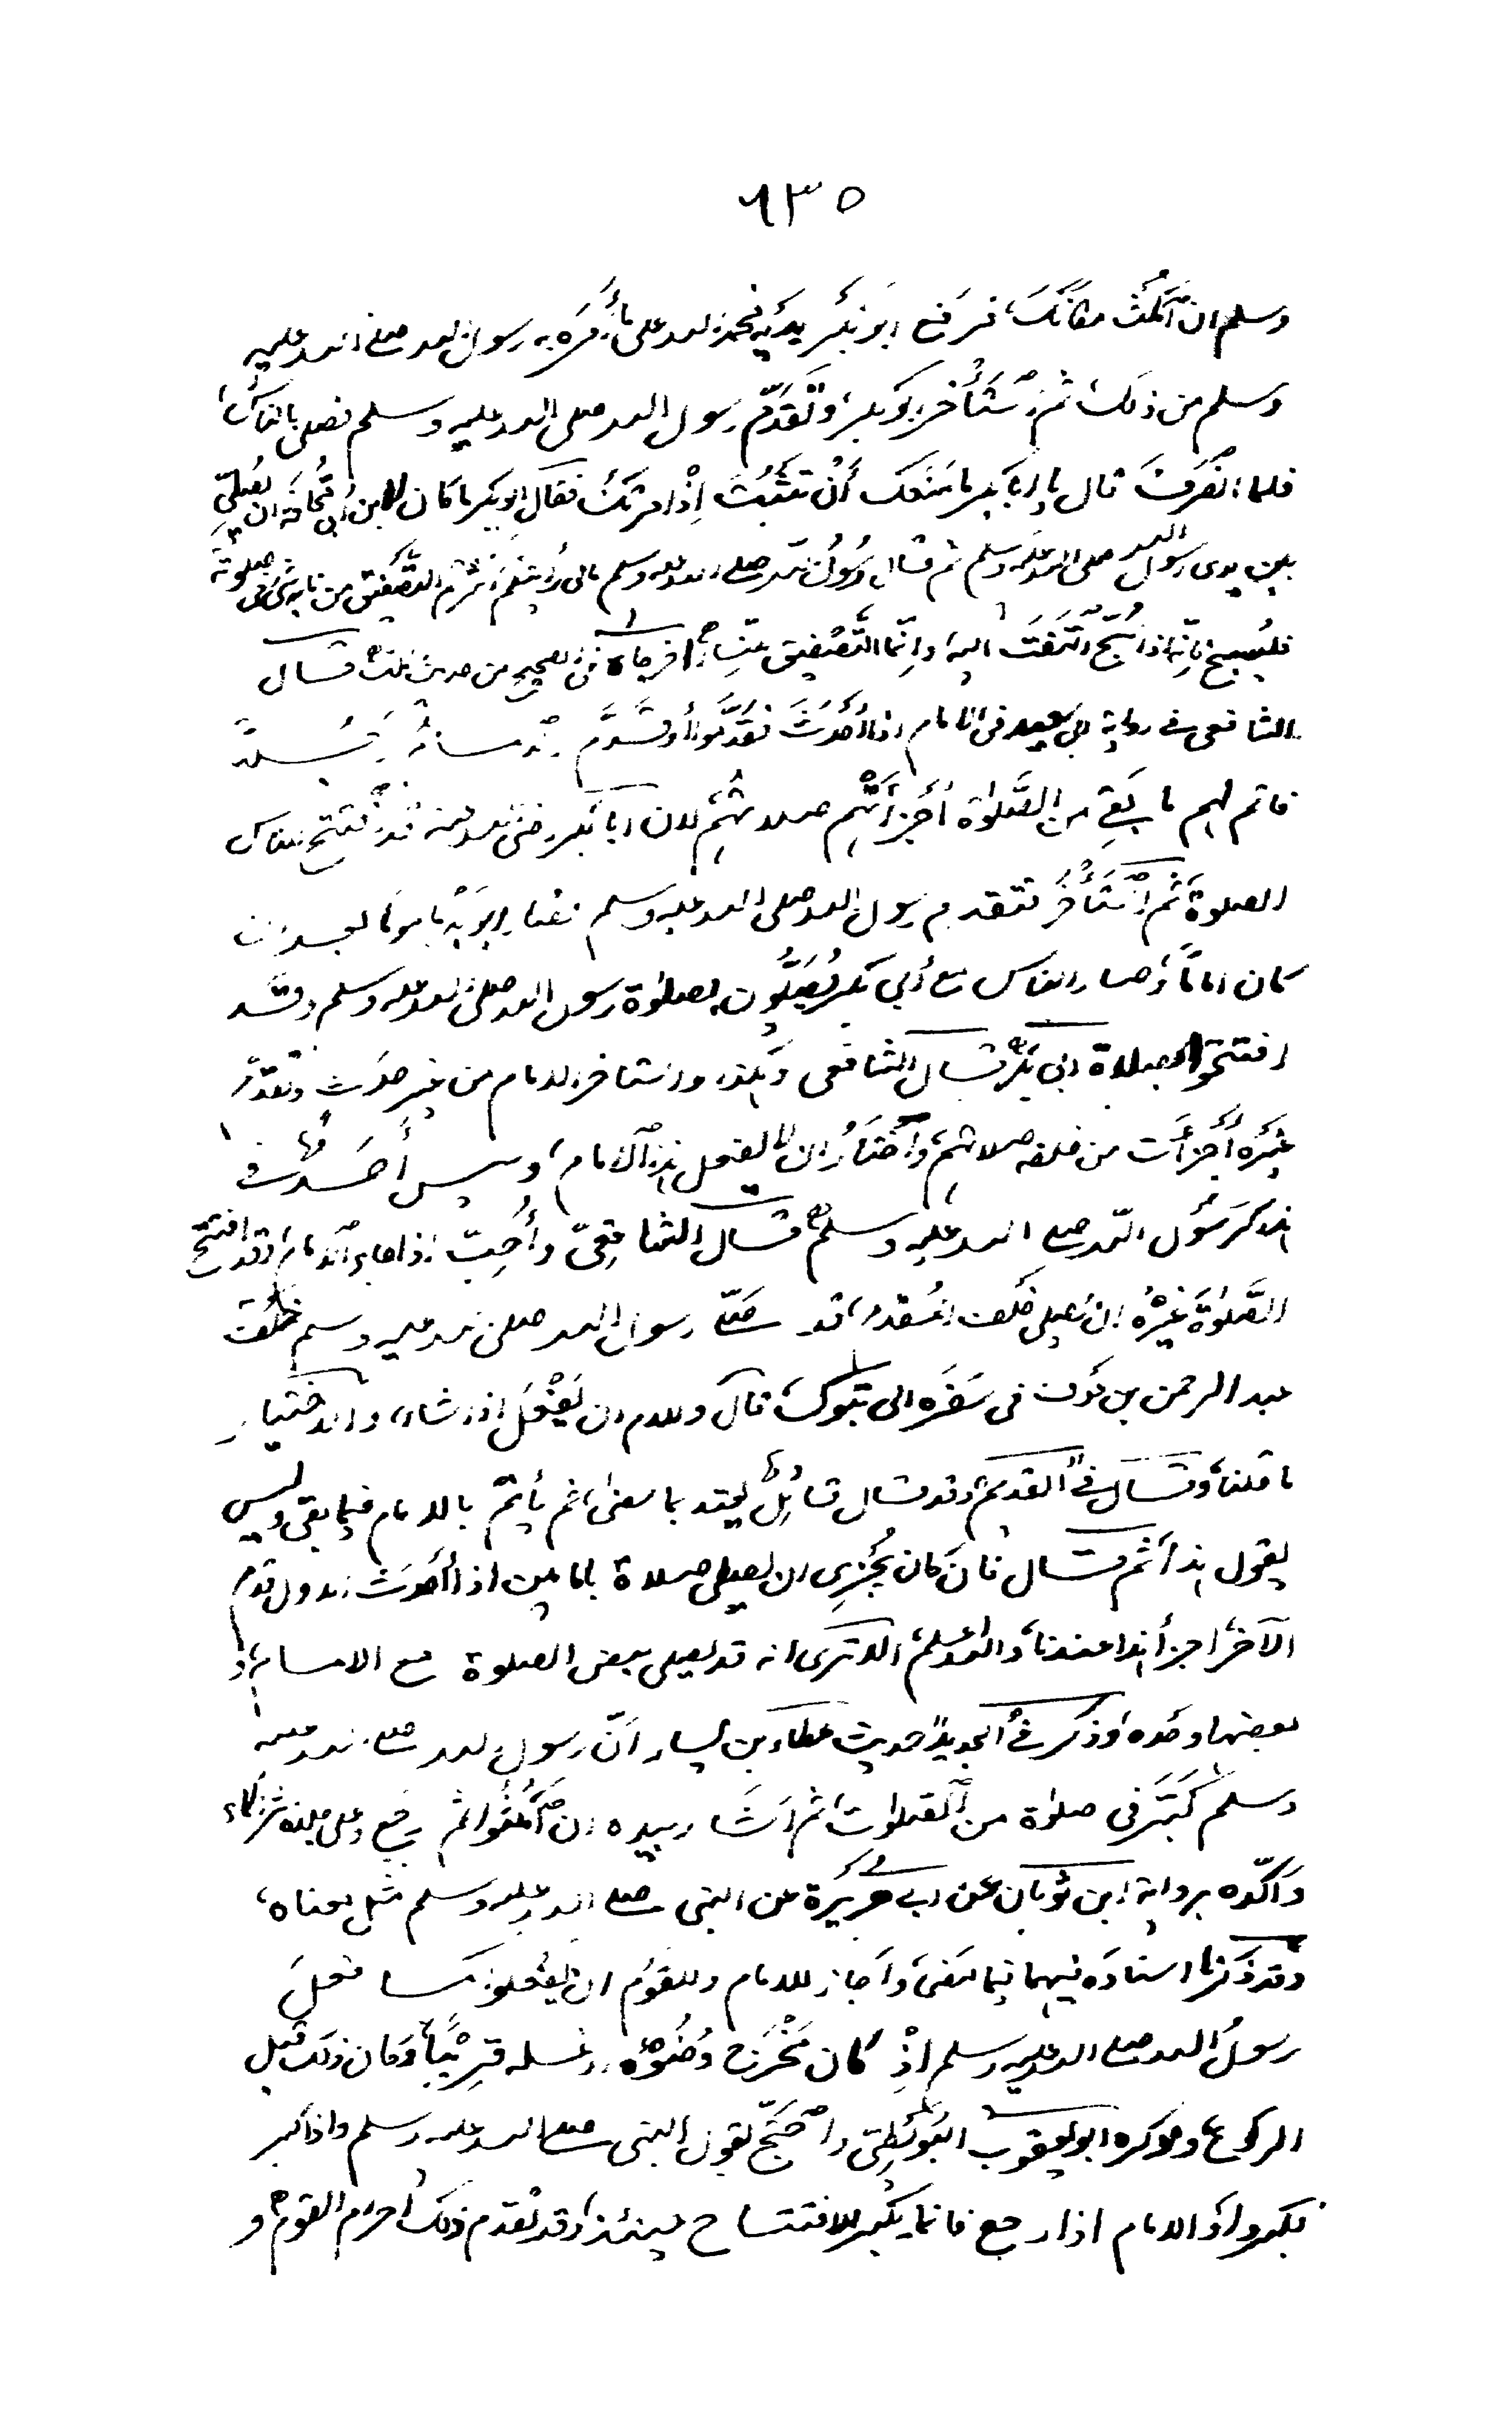 ٦٣٥
وسلم ان آمْكُثْ مكَانَكَ، فرَفع ابو بَكْر يدَيْه فحمد الله على مَا أَمَرَه به رسول الله صلى الله عليه
وسلم من ذلك، ثم اسْتَأخَر ابو بكر، وتَقَدَّم رسول الله صلى الله عليه وسلم فصلى بالناس،
فلما انْصَرَفَ قال يا ابا بكر ما مَنَعك أَنْ تَثْبُتَ إِذْ امرتكَ فقال ابو بكر ما كان لابن أبى قُحَافَة ان يُصَلِّىَ
بين يدى رسول الله صلى الله عليه وسلم ثم قال رسُولُ الله صلى الله عليه وسلم مالى رأيتكم أكثرتم التصفيق من نابه شئ فى صلوته
فليسبح فإنّه اذا سَبَّح الْتُفِتَ اليه، وانّما التَّصفيق للنساء، اخرجاه فى الصحيح من حديث مالك قال
الشافعى فى رواية ابى سعيد فى الامام اذا أَحْدَثَ فقَدَّمُوا أو قَدَّم
فاتم لهم ما بَقِىَ من الصَّلوٰة أجْزَأَتْهم صلاتهم لان أبَا بكر رضى الله عنه قد افتتح بالناس
الصلوة ثم اسْتَأْخَرَ فتقدم رسول الله صلى الله عليه وسلم فصار ابو بَكْر مأموما بعد ان
كان امامًا، وصار الناس مع أبى بكر يُصَلُّون بصلوٰة رسول الله صلى الله عليه وسلم وقَد
افتتحوا بصلاة ابى بكر، قال الشافعى وهكذا، لو استأخر الامام من غير حدَث وتقدَّم
غَيْرُه أَجْزَأَت من خلفه صلاتهم، وأخْتَارُ ان لا يفعل هذا الامام، وليس أَحَدٌ فى
هذا كرَسُول الله صلى الله عليه وسلم، قال الشافعىّ وأُحِبّ اذا جاء الامام وقد افتتح
الصَّلوٰة غَيْرُه ان يُصلى خلف المُتقدم، قد صَلّى رسول الله صلى الله عليه وسلم خلْفَ
عبد الرحمن بن عوف فى سَفَره الى تبوك، قال وللامام ان يَفْعَلَ اذا شاء، والاختيار
ما قلنا، وقال فى القديم، وقد قال قائِلٌ يعتد بما مضى، ثم يأتمّ بالامام فيما بقى وليس
يقول هذا، ثم قال فان كان يُجْزِى ان يصلى صلاة بامامين اذا أحْدَثَ الاول قدم
الآخر، اجزأ هذا عندنا، والله اعلم، الا ترى انه قد يصلى ببعض الصلوة مع الامام، و
بعضها وحده، وذكر فى الجديد حديث عطاء بن يسار أنّ رسول الله صلى الله عليه
وسلم كَبَّرَ فى صلوٰة من الصَّلوات، ثم أشَار بيده ان امْكُثُوا، ثم رجع وعلى جلده أثر الماء،
وَأكّده برواية ابن ثوبان عن ابى هريرة عن النبى صلى الله عليه وسلم مثل معناه،
وقد ذكرنا اسناده فيهما فيما مَضى، وأجاز للامام وللقوم ان يفْعلوا كما فعلَ
رسولُ الله صلى الله عليه وسلم إذْ كان مَخْرَج وضُوئه، وغسله قريْباً، وكان ذلك قبل
الركوع، وهو كره ابو يعقوب البُوَيْطِىّ واحتَجّ بقول النبى صلى الله عليه وسلم واذا كبر
فكبروا، والامام اذا رجع فانما يكبّر للافتتاح حينئذ، وقد تقدم ذلك احرام القوم، و